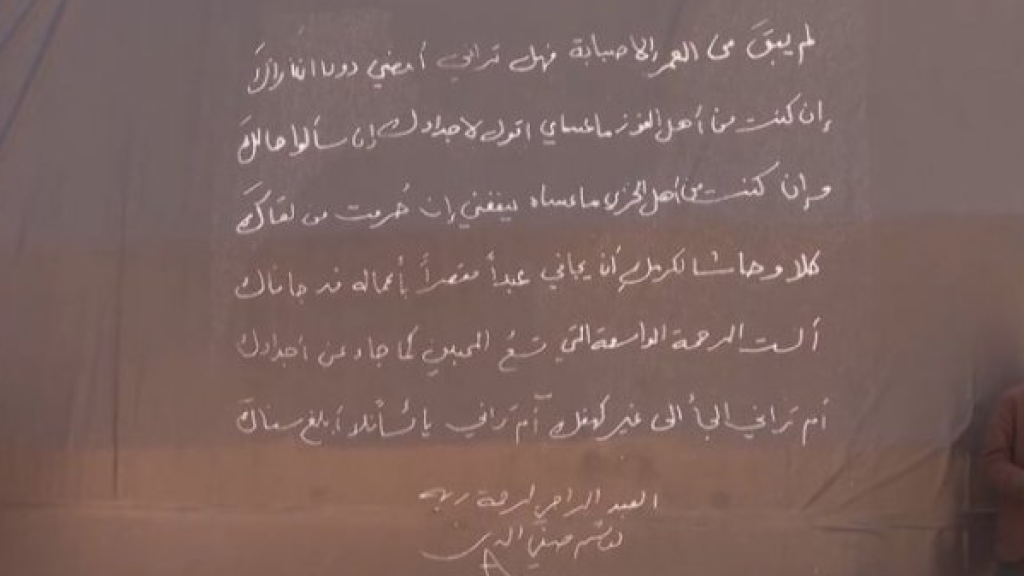 لم يبقَ من العمر إلا صبابة فهل تراني أمضي دون أن أراكَ
إن كنت من أهل الفوز ما عساي اقول لاجدادك إن سألوا حالك
وإن كنت من أهل الخزي ما عساه ينفعني إن حُرمت من لقاكَ
كلا وحاشا لكرمك أن يجافي عبداً مقصراً بأعماله قد جافاك
ألست الرحمة الواسعة التي تسعُ المحبين كما جاء عن أجدادك
أم تراني الجأ الى غير كهفك أم تراني يائساً لا أبلغ سناك
العبد الراجي لرحمة ربه